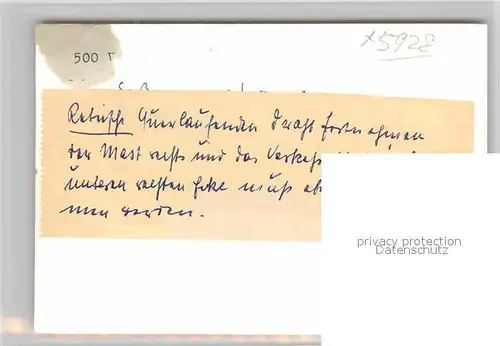 500 T
x5928
Retusche Querlaufenden Draht fortnehmen
der Mast rechts und das Verkehrs
unteren rechten Ecke muß ab
men werden.
privacy protection
Datenschutz